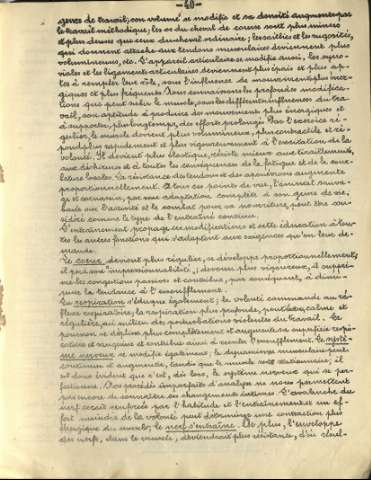 - 40 -
genre de travail, son volume se modifie et sa densité augmente par
le travail méthodique; les os du cheval de course sont plus minces
et plus denses que ceux du cheval ordinaire; les saillies et les rugosités,
qui donnent attache aux tendons musculaires deviennent plus
volumineuses, etc. L'appareil articulaire se modifie aussi, les syno-
viales et les ligaments articulaires deviennent plus épais et plus ap-
tes à remplir leur rôle, sous l'influence de mouvements plus éner-
giques et plus fréquents. Nous connaissons les profondes modifica-
tions que peut subir le muscle, sous les différentes influences du tra-
vail, son aptitude à produire des mouvements plus énergiques et
à supporter, plus longtemps, des efforts prolongés. Par l'exercice ré-
gulier, le muscle devient plus volumineux, plus contractile et ré-
pond plus rapidement et plus vigoureusement à l'excitation de la
volonté. Il devient plus élastique, résiste mieux aux tiraillements,
aux déchirures et à toutes les conséquences de la fatigue et de la cour-
bature locales. La résistance des tendons et des aponévroses augmente
proportionnellement. A tous ces points de vue, l'animal sauva-
ge et carnassier, par son adaptation complète à son genre de vie,
basé sur l'activité et le combat pour sa nourriture, peut être con-
sidéré comme le type de l'entraîné continu.
L'entraînement propage ces modifications et cette éducation à tou-
tes les autres fonctions qui s'adaptent aux exigences qu'on leur de-
mande.
Le cœur devient plus régulier, se développe proportionnellement,
il perd son "impressionnabilité", devient plus vigoureux, il suppri-
me les congestions passives et contribue, par conséquent, à dimi-
nuer la tendance à l'essoufflement.
La respiration s'éduque également; la volonté commande au ré-
flexe respiratoire; la respiration plus profonde, peut être calme et
régulière, au milieu des perturbations violentes du travail. Le
poumon se déplisse plus complètement et augmente sa superficie respi-
ratoire et sanguine et contribue ainsi à reculer l'essoufflement. Le systè-
me nerveux se modifie également; la dynamique musculaire peut
continuer et augmenter, tandis que le muscle reste stationnaire; il
est donc évident que c'est, dès lors, le système nerveux qui se per-
fectionne. Nos procédés imparfaits d'analyse ne nous permettent
pas encore de connaître ces changements intimes. L'avalanche du
nerf serait renforcée par l'habitude et l'entraînement et un ef-
fort moindre de la volonté peut déterminer une contraction plus
énergique du muscle; le nerf s'entraîne. De plus, l'enveloppe
des nerfs, dans le muscle, deviendrait plus résistante, d'où résul-